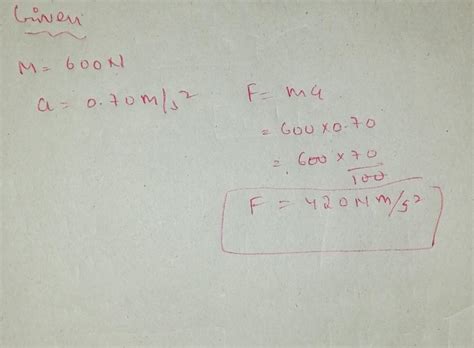 Given
M = 600N
a = 0.70m/s²
F = ma
= 600×0.70
= 600 × 70
100
F = 420Nm/s²